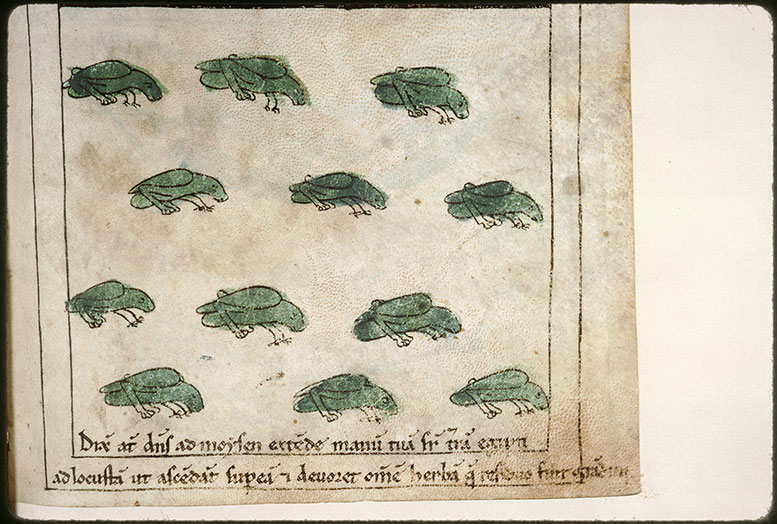 Dix̄ aт̄ dn̄s ad moysen extēde manū tuā sr̄ t̄rā egypti
ad locustā ut ascēdat̄ sup eā ⁊ devoret om̄ē herbā q̄ residuo fuit